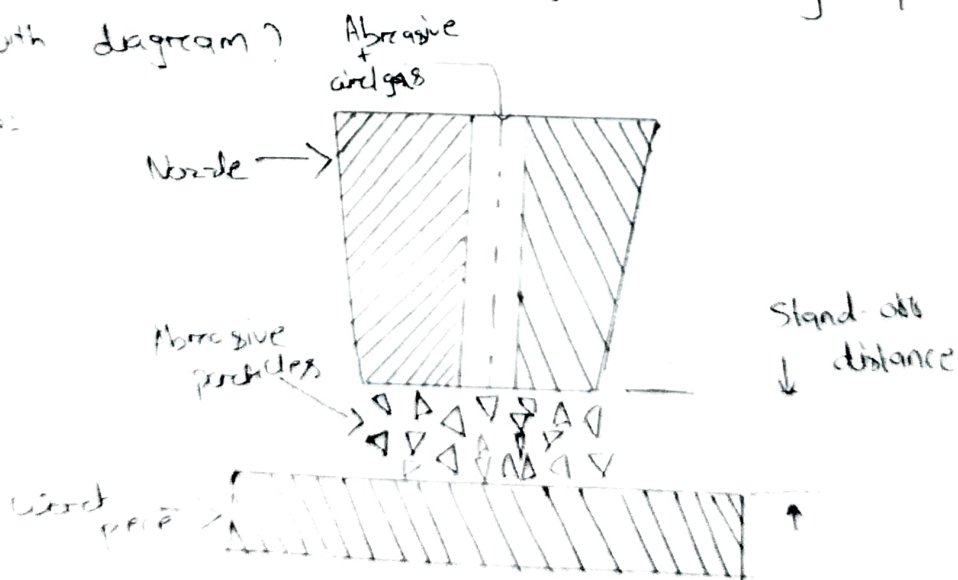 with diagream?
Abreasive
+
aird gas
Nozzle
Abreasive
particles
Stand-off
distance
piece